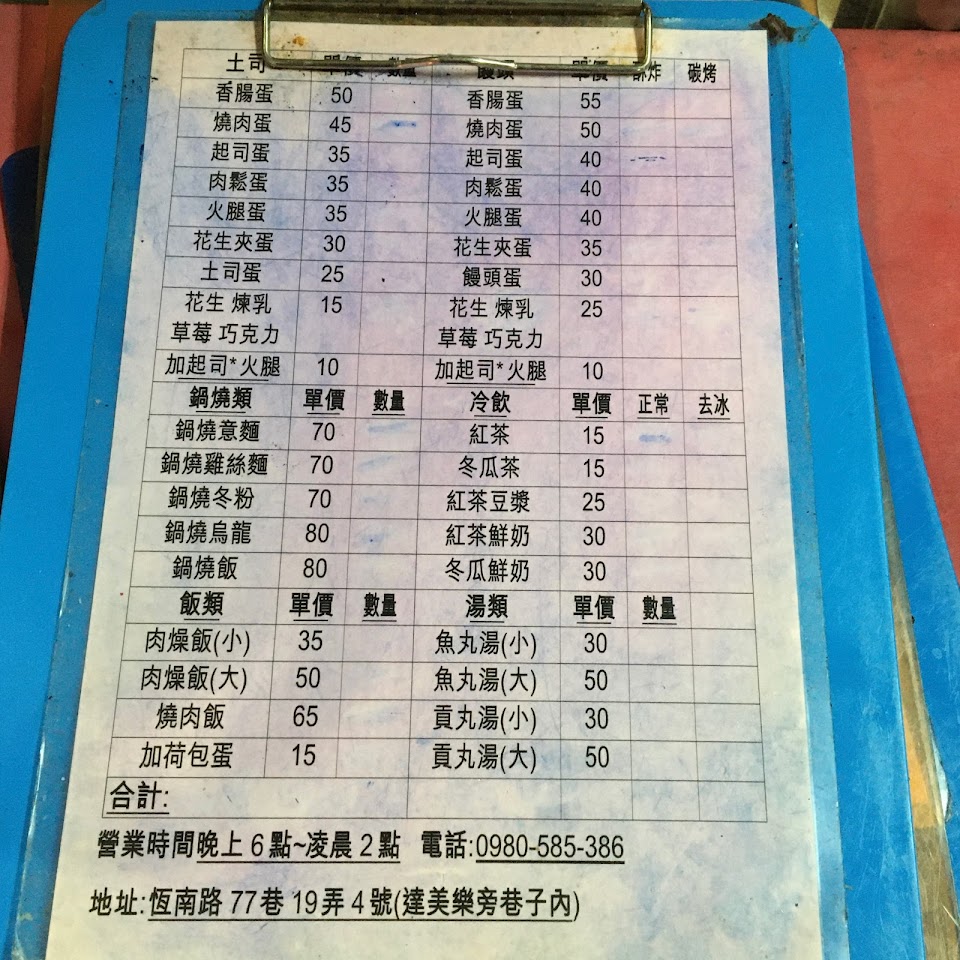 土司 單價 數量 饅頭 單價 酥炸 碳烤
香腸蛋 50 香腸蛋 55
燒肉蛋 45 燒肉蛋 50
起司蛋 35 起司蛋 40
肉鬆蛋 35 肉鬆蛋 40
火腿蛋 35 火腿蛋 40
花生夾蛋 30 花生夾蛋 35
土司蛋 25 饅頭蛋 30
花生 煉乳 15 花生 煉乳 25
草莓 巧克力 草莓 巧克力
加起司*火腿 10 加起司*火腿 10
鍋燒類 單價 數量 冷飲 單價 正常 去冰
鍋燒意麵 70 紅茶 15
鍋燒雞絲麵 70 冬瓜茶 15
鍋燒冬粉 70 紅茶豆漿 25
鍋燒烏龍 80 紅茶鮮奶 30
鍋燒飯 80 冬瓜鮮奶 30
飯類 單價 數量 湯類 單價 數量
肉燥飯(小) 35 魚丸湯(小) 30
肉燥飯(大) 50 魚丸湯(大) 50
燒肉飯 65 貢丸湯(小) 30
加荷包蛋 15 貢丸湯(大) 50
合計:
營業時間晚上 6 點~凌晨 2 點 電話:0980-585-386
地址:恆南路 77 巷 19 弄 4 號(達美樂旁巷子內)